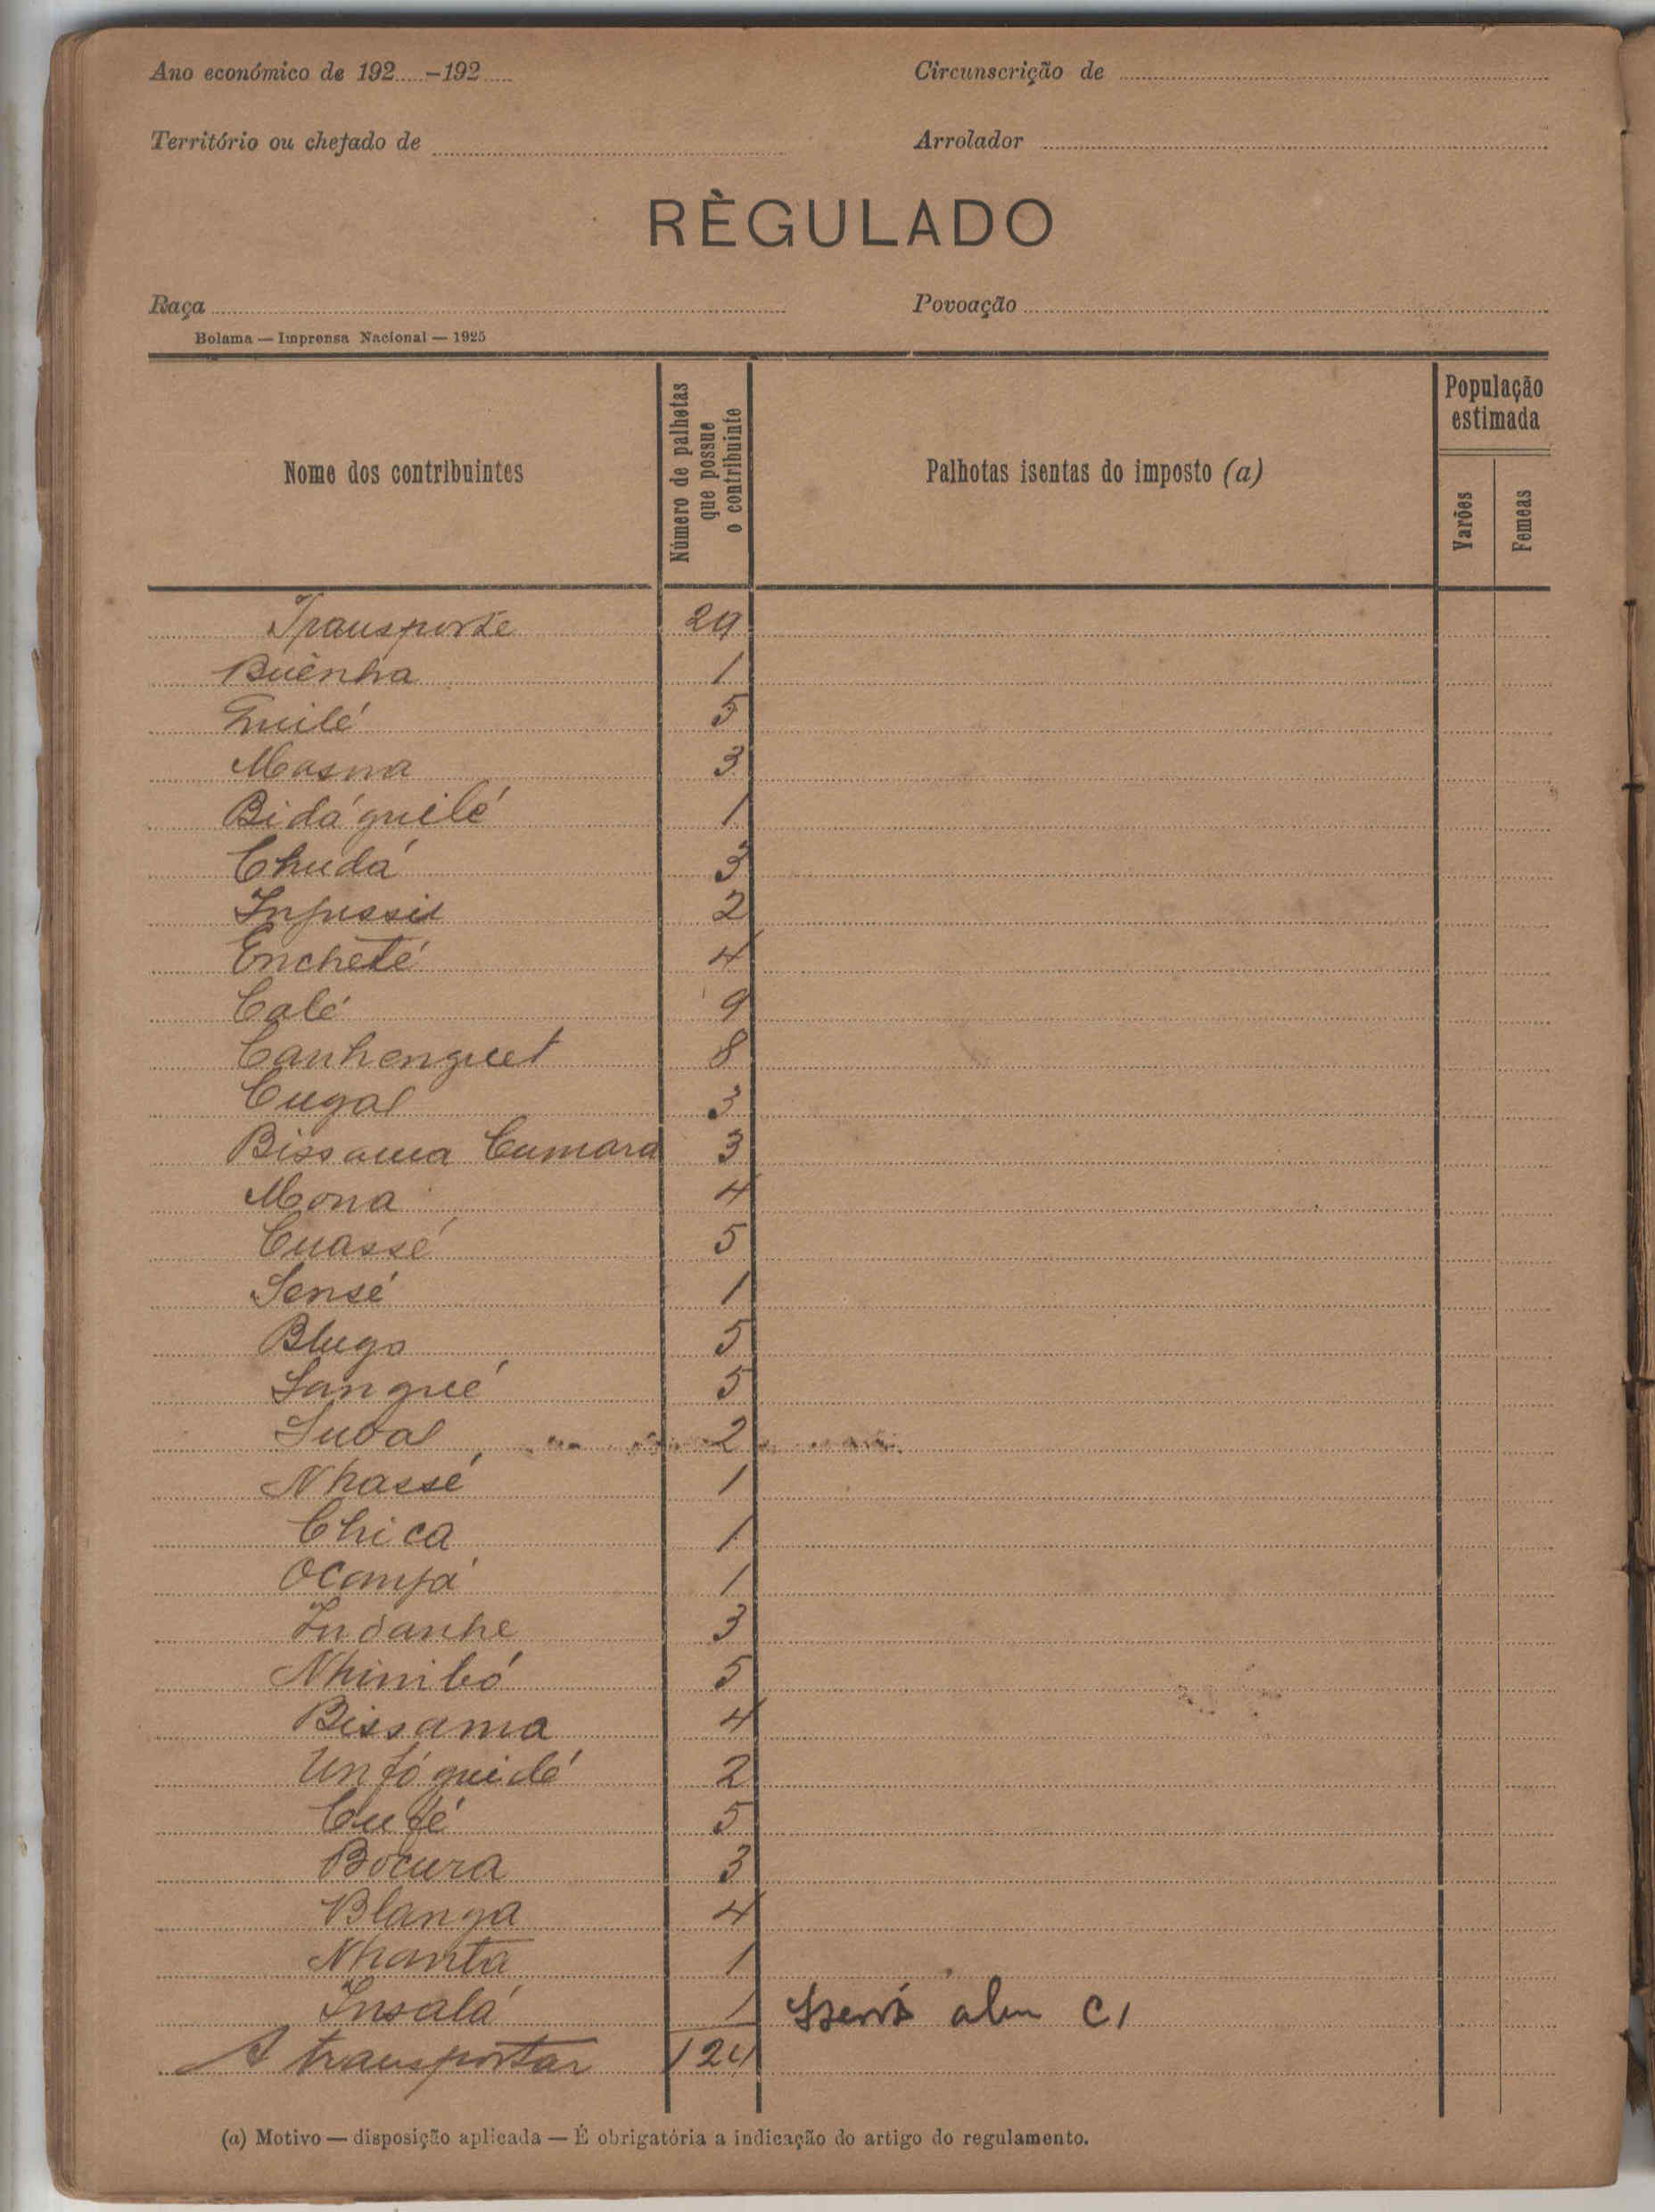 Ano económico de 192.....–192.....
Circunscrição de
Território ou chefado de
Arrolador
RÈGULADO
Raça
Povoação
Bolama — Imprensa Nacional — 1925
Nome dos contribuintes
Número de palhotas que possue o contribuinte
Palhotas isentas do imposto (a)
População estimada
Varões
Femeas
Transporte 29
Buênha 1
Guilé 5
Masna 3
Bidáguilé 1
Chudá 3
2
Encheté 4
Calé 9
Canhenguet 8
Cugal 3
Bissaua Cumara 3
Mona 4
Cuassé 5
Sensé 1
Blugo 5
Sangué 5
2
Nhassé 1
Chica 1
1
Indanhe 3
Nhinibó 5
Bissama 4
2
Cufé 5
Bocura 3
Blanga 4
Nhanta 1
Insalá 1
A transportar 124
(a) Motivo — disposição aplicada — É obrigatória a indicação do artigo do regulamento.